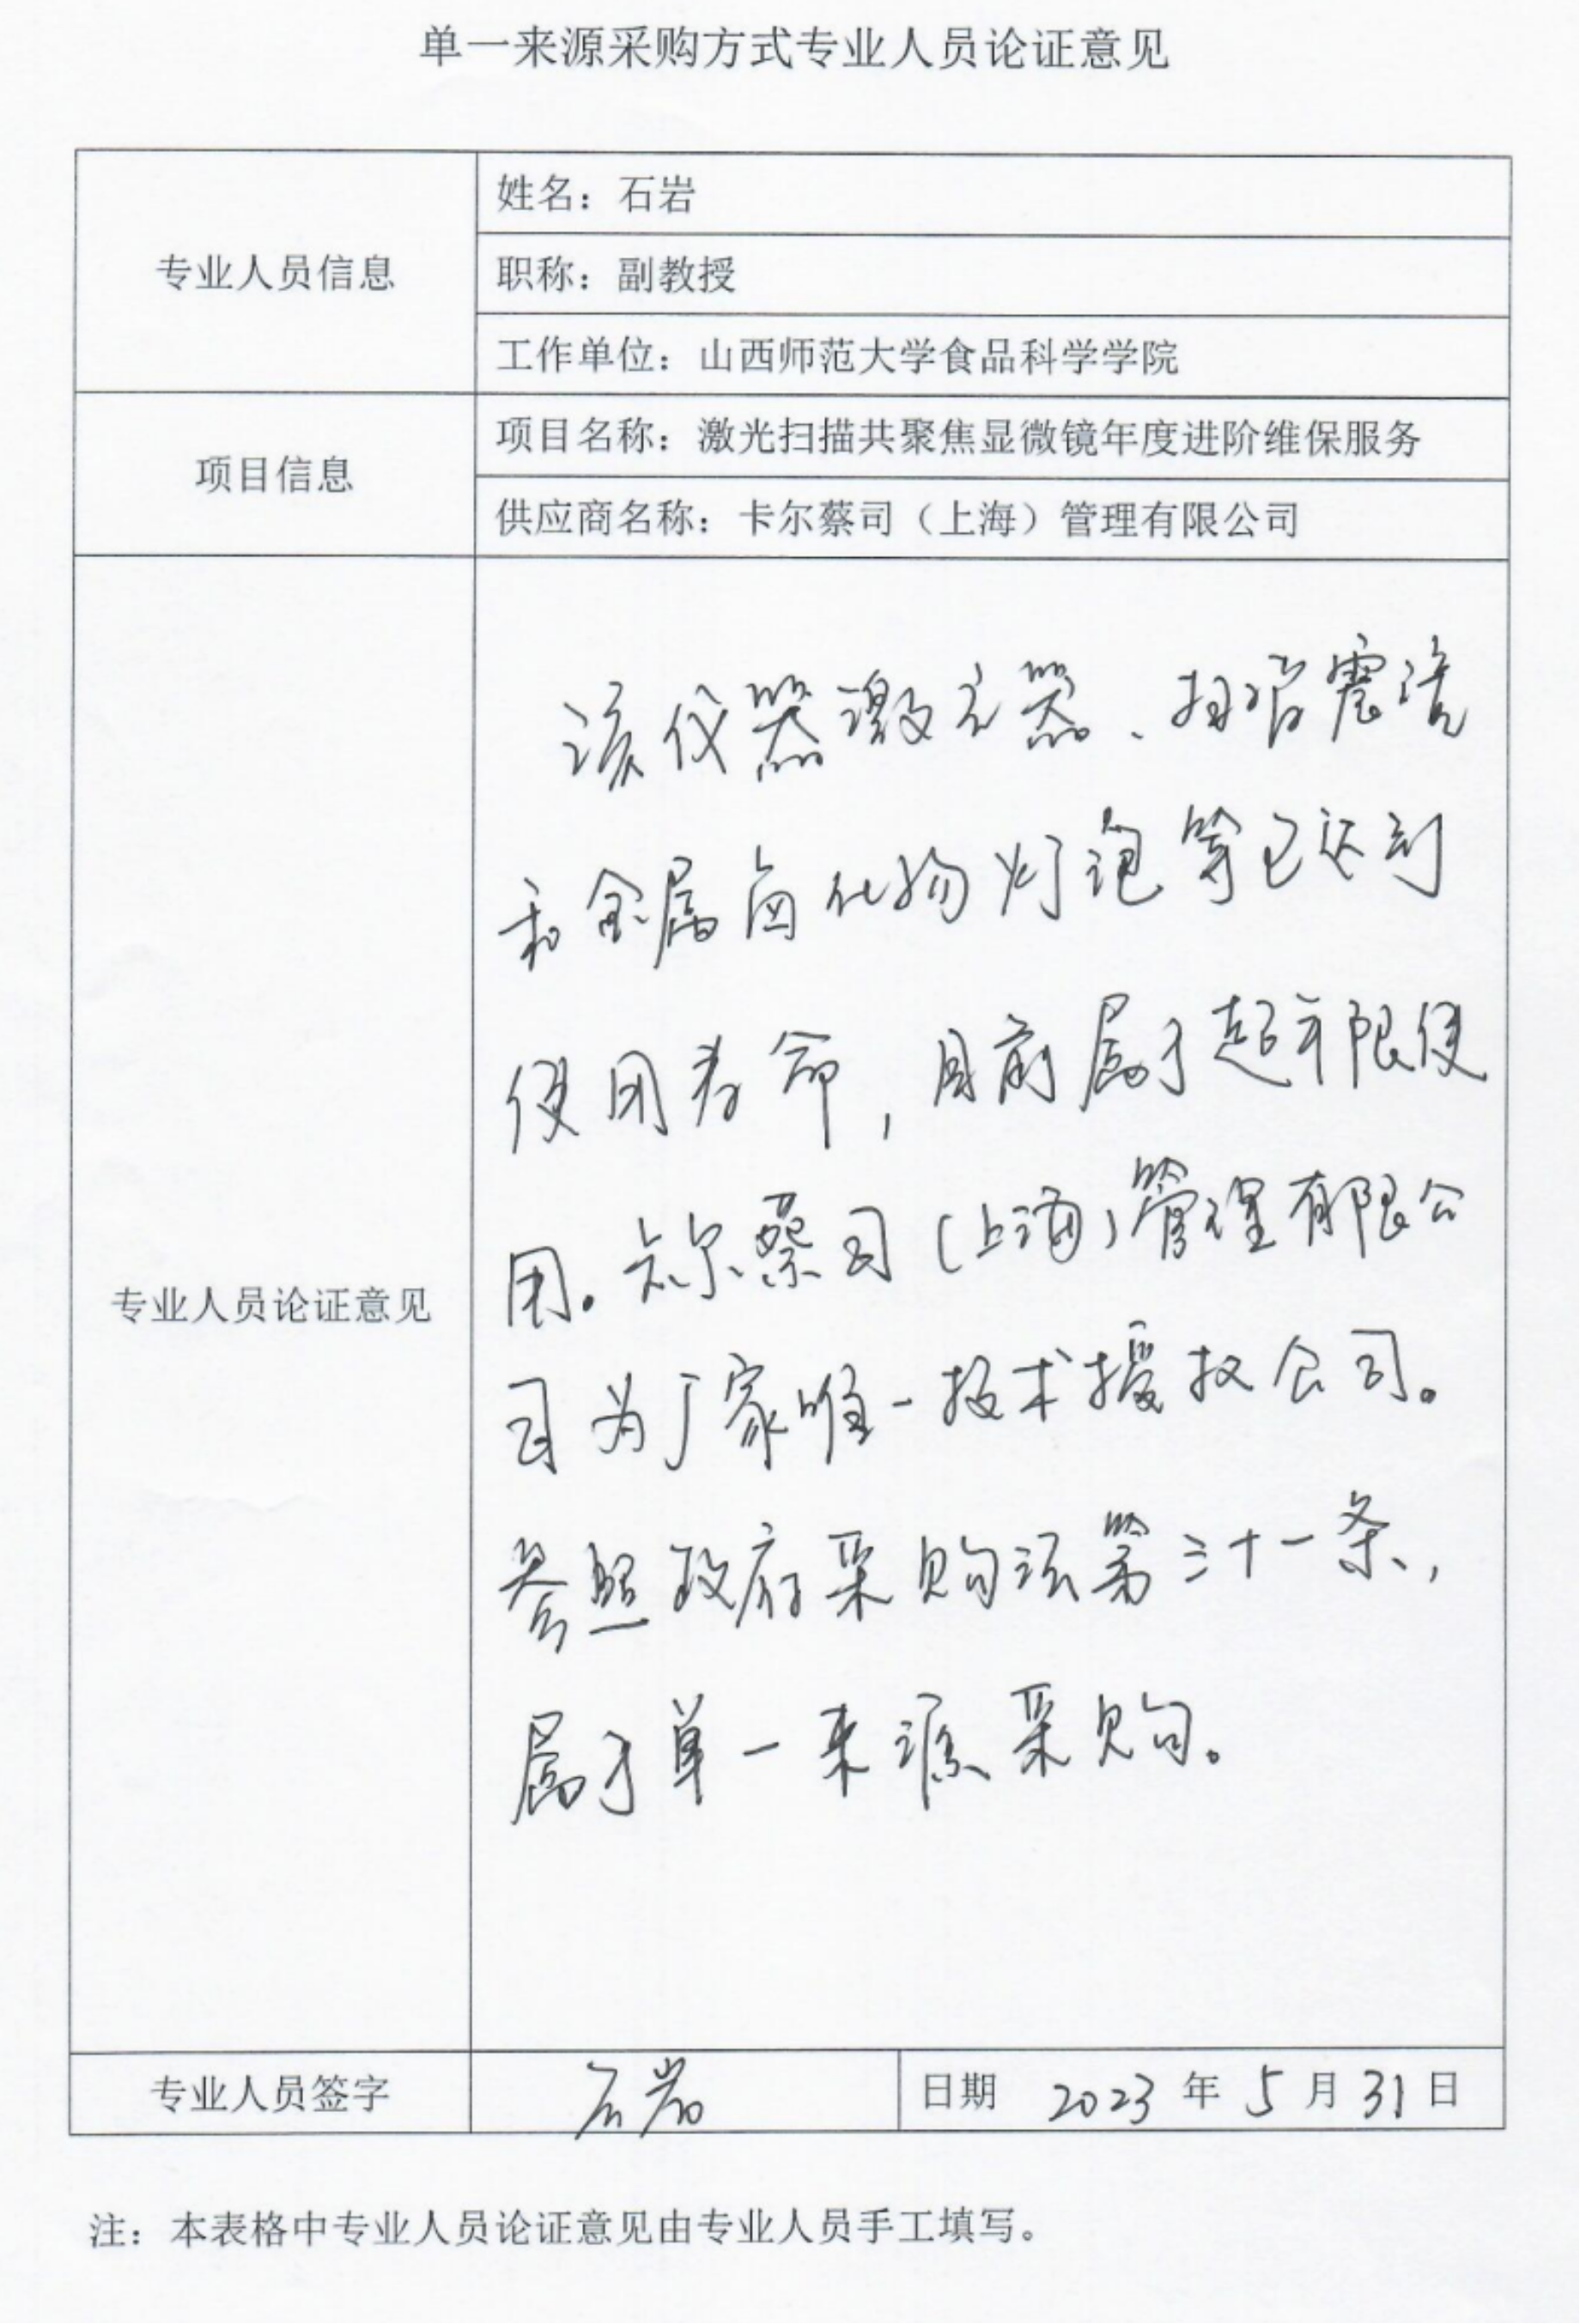 单一来源采购方式专业人员论证意见
专业人员信息
姓名：石岩
职称：副教授
工作单位：山西师范大学食品科学学院
项目信息
项目名称：激光扫描共聚焦显微镜年度进阶维保服务
供应商名称：卡尔蔡司（上海）管理有限公司
专业人员论证意见
该仪器激光器、扫描震镜
和金属卤化物灯泡等已达到
使用寿命，目前属于超年限使
用。卡尔蔡司（上海）管理有限公
司为厂家唯一技术授权公司。
参照政府采购法第三十一条，
属于单一来源采购。
专业人员签字
石岩
日期 2023 年 5 月 31 日
注：本表格中专业人员论证意见由专业人员手工填写。